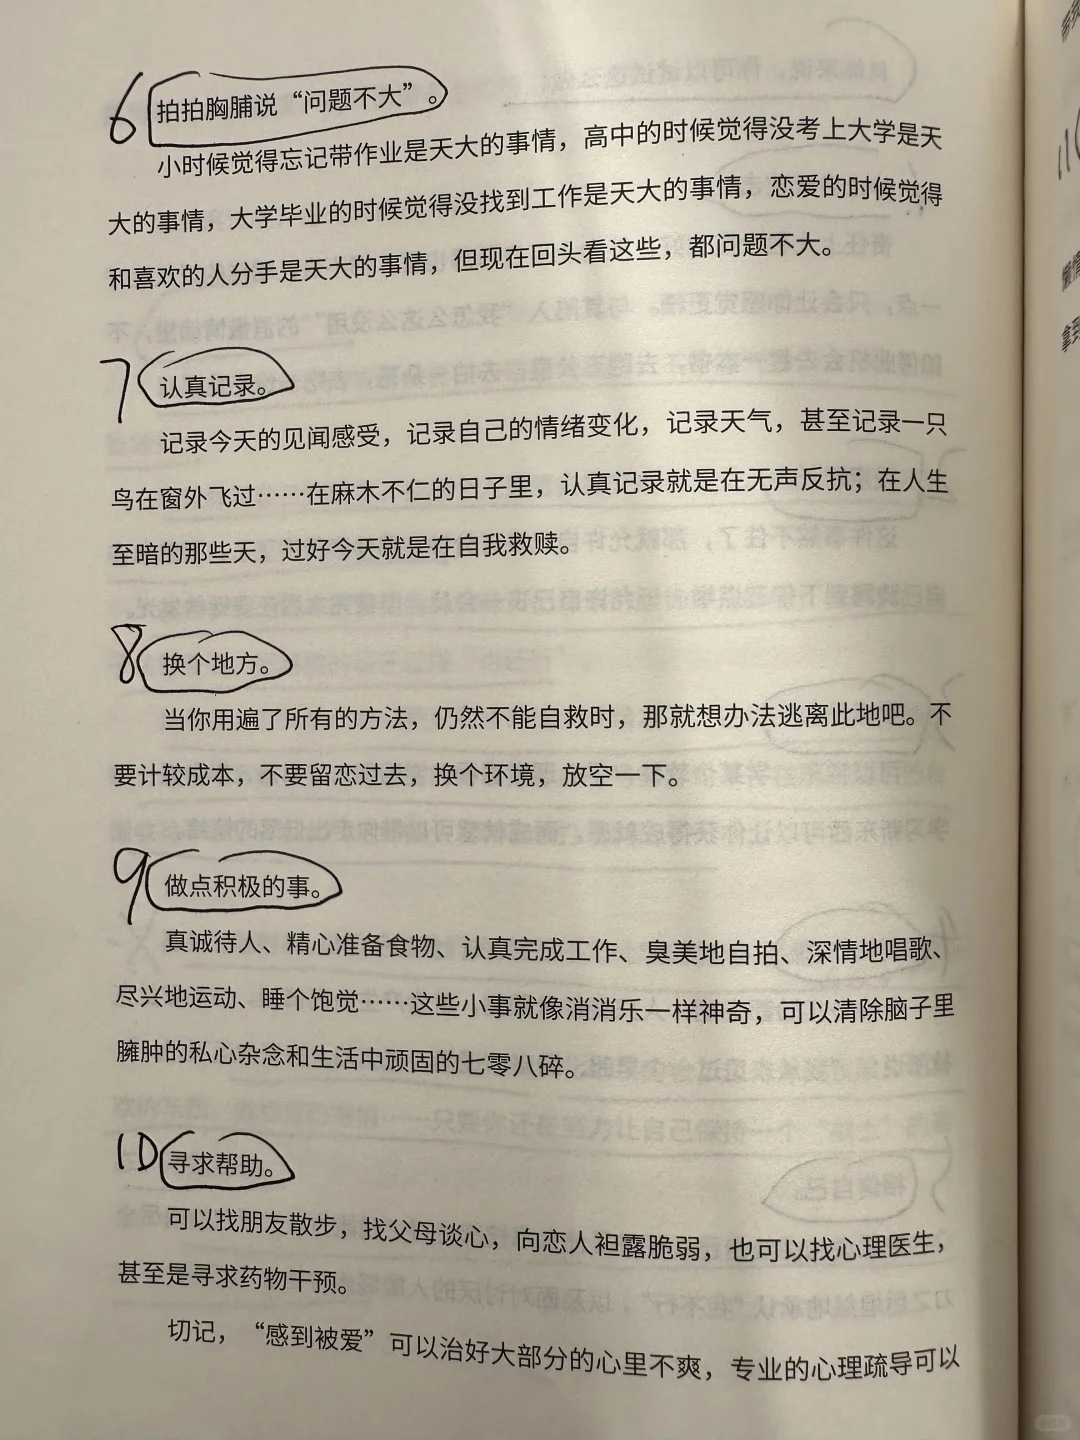 6 拍拍胸脯说“问题不大”。
小时候觉得忘记带作业是天大的事情，高中的时候觉得没考上大学是天
大的事情，大学毕业的时候觉得没找到工作是天大的事情，恋爱的时候觉得
和喜欢的人分手是天大的事情，但现在回头看这些，都问题不大。
7 认真记录。
记录今天的见闻感受，记录自己的情绪变化，记录天气，甚至记录一只
鸟在窗外飞过……在麻木不仁的日子里，认真记录就是在无声反抗；在人生
至暗的那些天，过好今天就是在自我救赎。
8 换个地方。
当你用遍了所有的方法，仍然不能自救时，那就想办法逃离此地吧。不
要计较成本，不要留恋过去，换个环境，放空一下。
9 做点积极的事。
真诚待人、精心准备食物、认真完成工作、臭美地自拍、深情地唱歌、
尽兴地运动、睡个饱觉……这些小事就像消消乐一样神奇，可以清除脑子里
臃肿的私心杂念和生活中顽固的七零八碎。
10 寻求帮助。
可以找朋友散步，找父母谈心，向恋人袒露脆弱，也可以找心理医生，
甚至是寻求药物干预。
切记，“感到被爱”可以治好大部分的心里不爽，专业的心理疏导可以